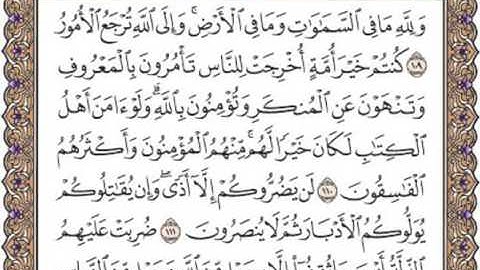 وَلِلَّهِ مَا فِي السَّمَاوَاتِ وَمَا فِي الْأَرْضِ ۚ وَإِلَى اللَّهِ تُرْجَعُ الْأُمُورُ
١٠٩ كُنتُمْ خَيْرَ أُمَّةٍ أُخْرِجَتْ لِلنَّاسِ تَأْمُرُونَ بِالْمَعْرُوفِ
وَتَنْهَوْنَ عَنِ الْمُنكَرِ وَتُؤْمِنُونَ بِاللَّهِ ۗ وَلَوْ ءَامَنَ أَهْلُ
الْكِتَابِ لَكَانَ خَيْرًا لَّهُم ۚ مِّنْهُمُ الْمُؤْمِنُونَ وَأَكْثَرُهُمُ
الْفَاسِقُونَ ١١٠ لَن يَضُرُّوكُمْ إِلَّا أَذًى ۖ وَإِن يُقَاتِلُوكُمْ
يُوَلُّوكُمُ الْأَدْبَارَ ثُمَّ لَا يُنصَرُونَ ١١١ ضُرِبَتْ عَلَيْهِمُ